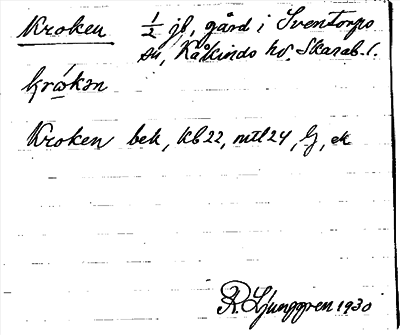 Kroken ½ jb, gård i Sventorps
sn, Kåkinds hd. Skarab.l.
Kroken bek, kb22, mtl24, lj, ek
R. Ljunggren 1930